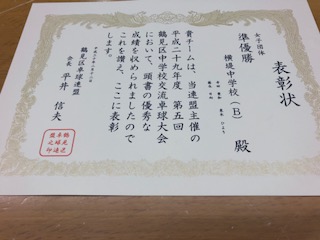 表彰状
女子団体
準優勝
横堤中学校(B)殿
貴チームは、当連盟主催の
平成二十九年度、第五回
鶴見区中学校交流卓球大会
において、頭書の優秀な
成績を収められましたので
これを讃え、ここに表彰
します。
鶴見区卓球連盟
会長 平井 信夫